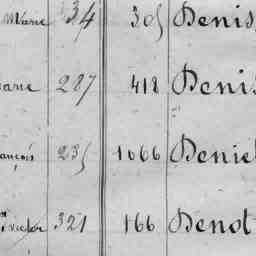 Marie 34 305 Denis
arie 287 418 Denis
ançois 235 1066 Deniel
Victor 321 166 Denot